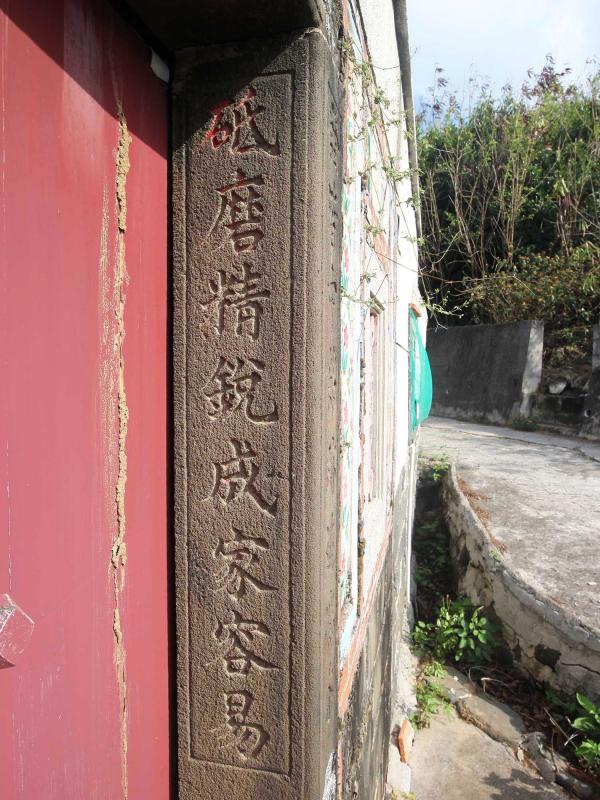 砥磨精銳成家容易